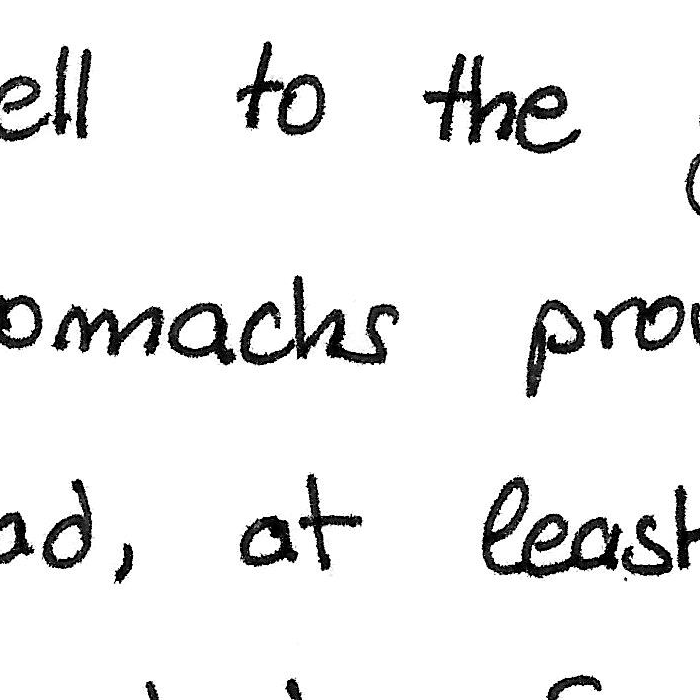 ell to the
omachs pro
ad, at least